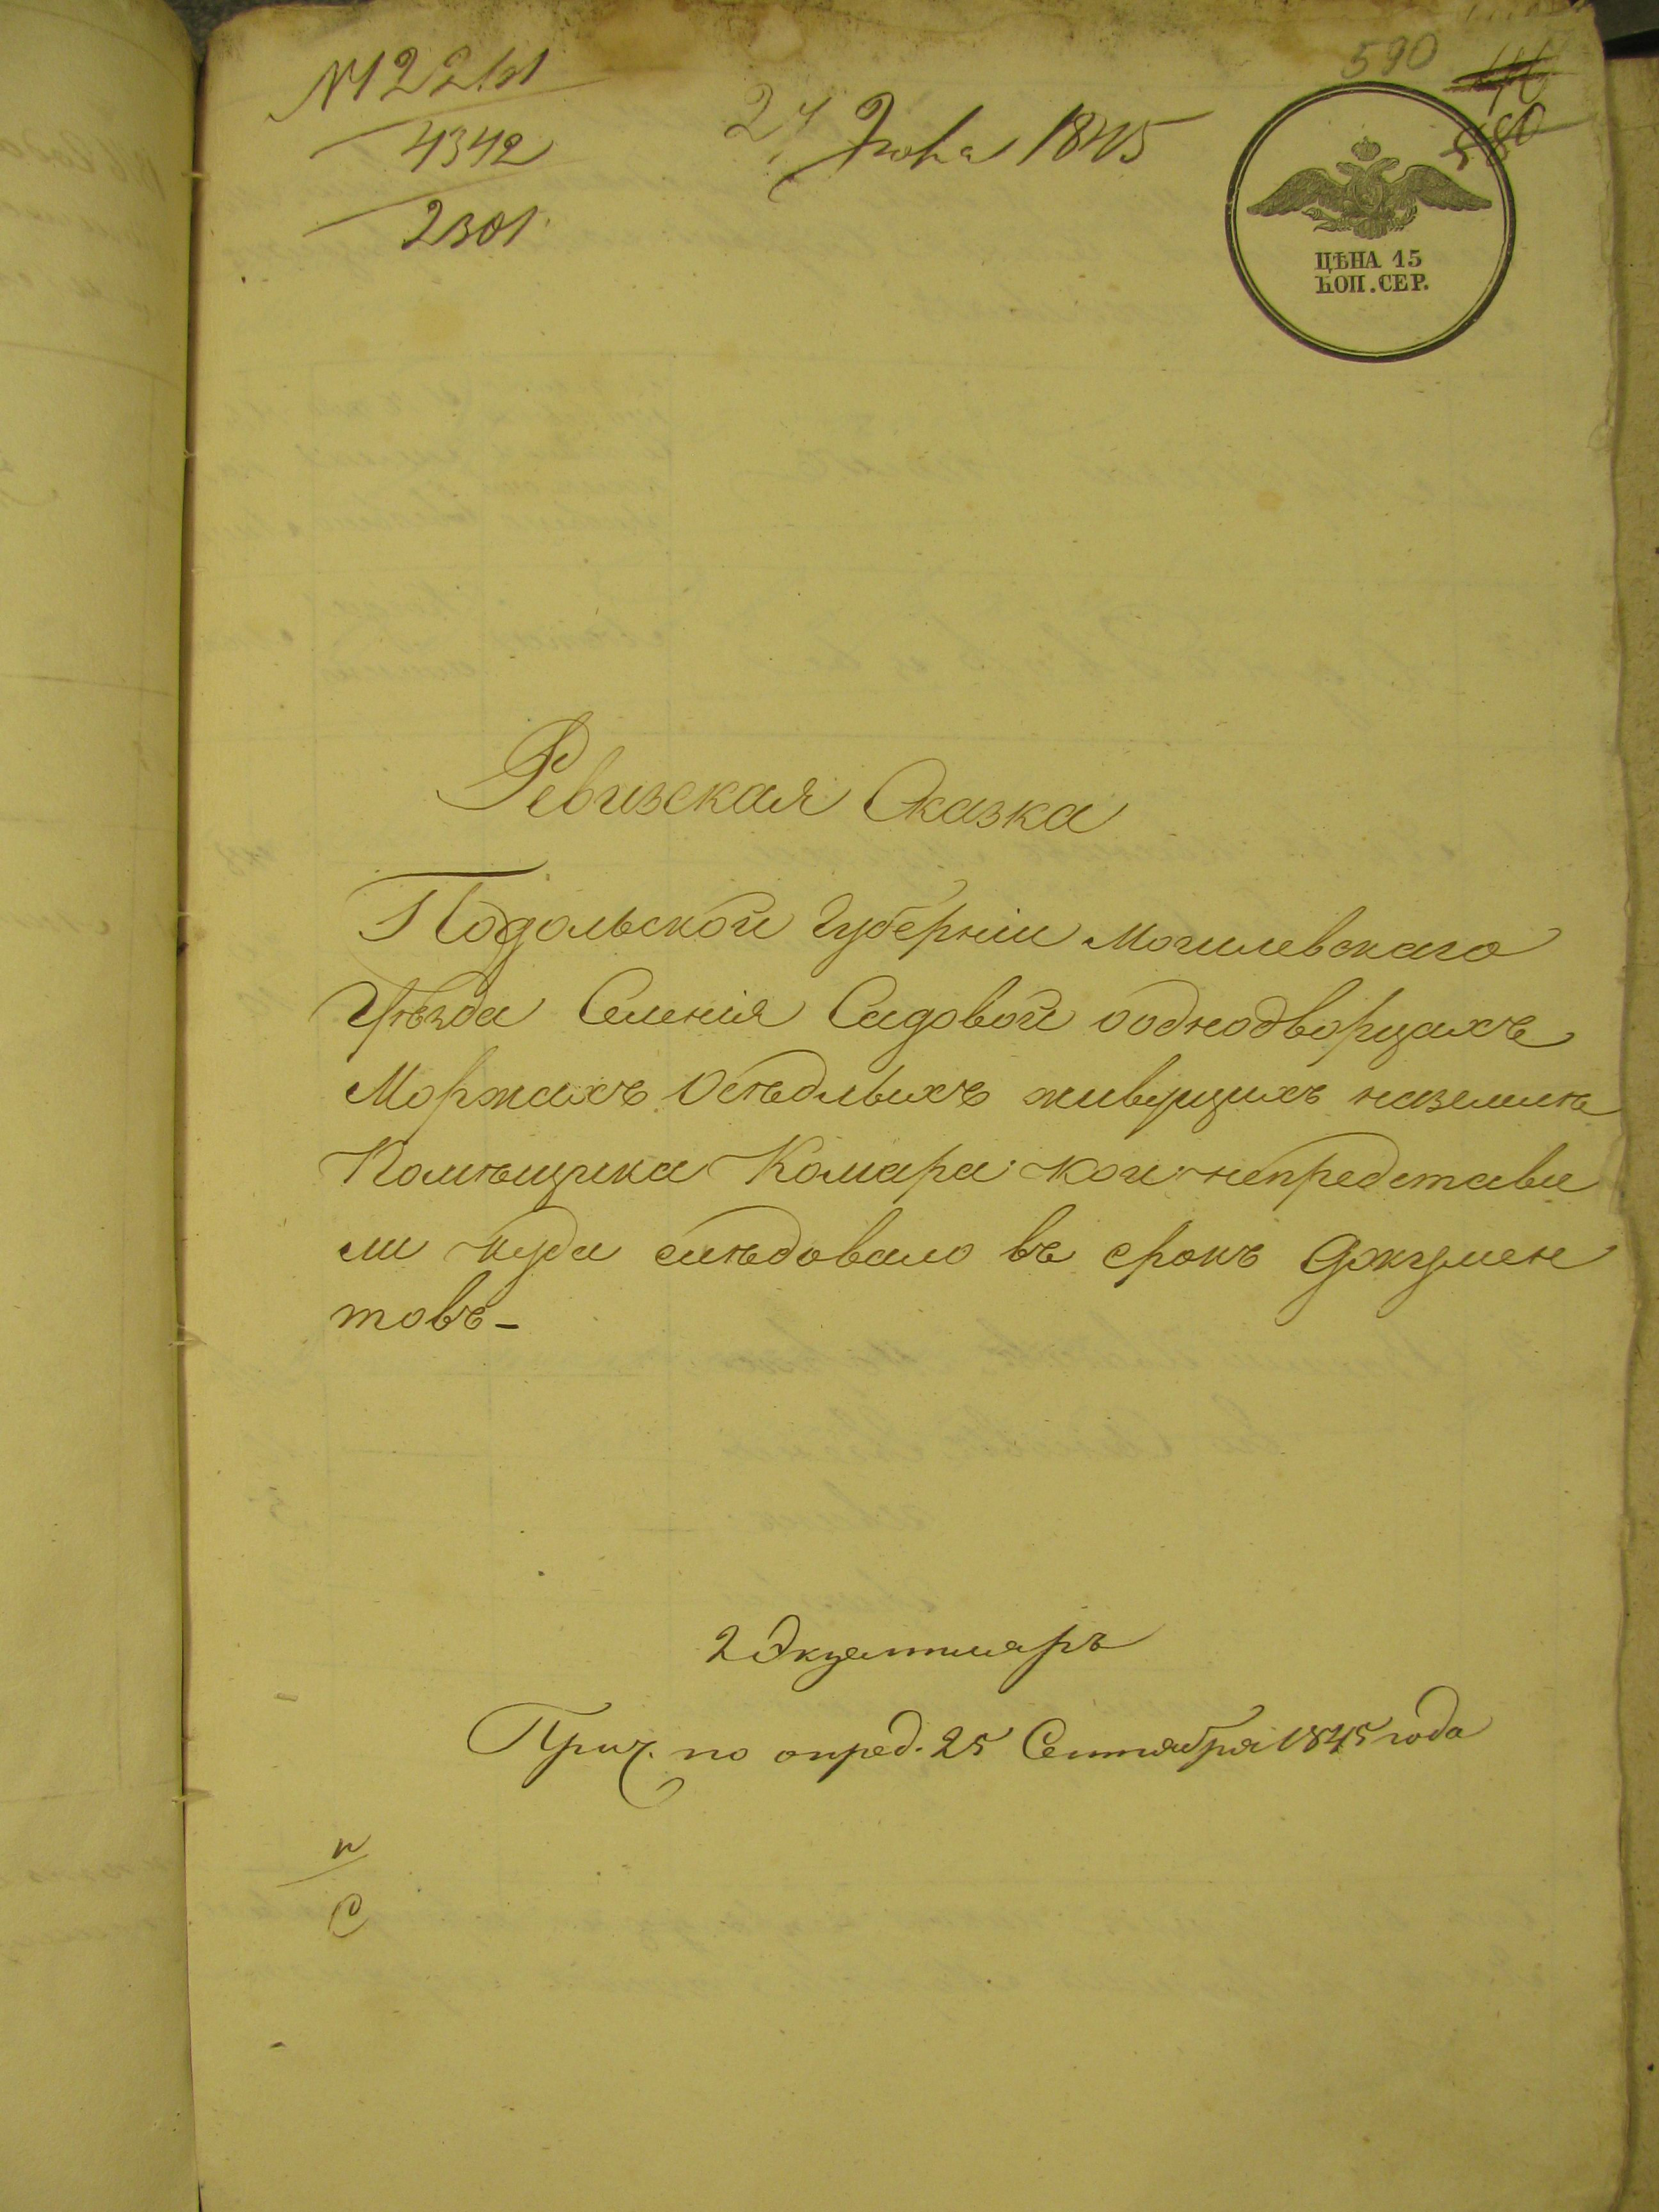 590
580
4342
2301
1845
ЦѢНА 15
КОП. СЕР.
Ревизская Сказка
Подольской Губерніи Могилевскаго
Уѣзда Селенія Садовой ооднодворцахъ
Моржахъ Осѣдлыхъ живущихъ наземлѣ
Помѣщика Комара кои непредстави
ли куда слѣдовало въ срокъ Докумен
товъ-
2 Экземпляръ
Прич. по опред. 25 Сентября 1845 года